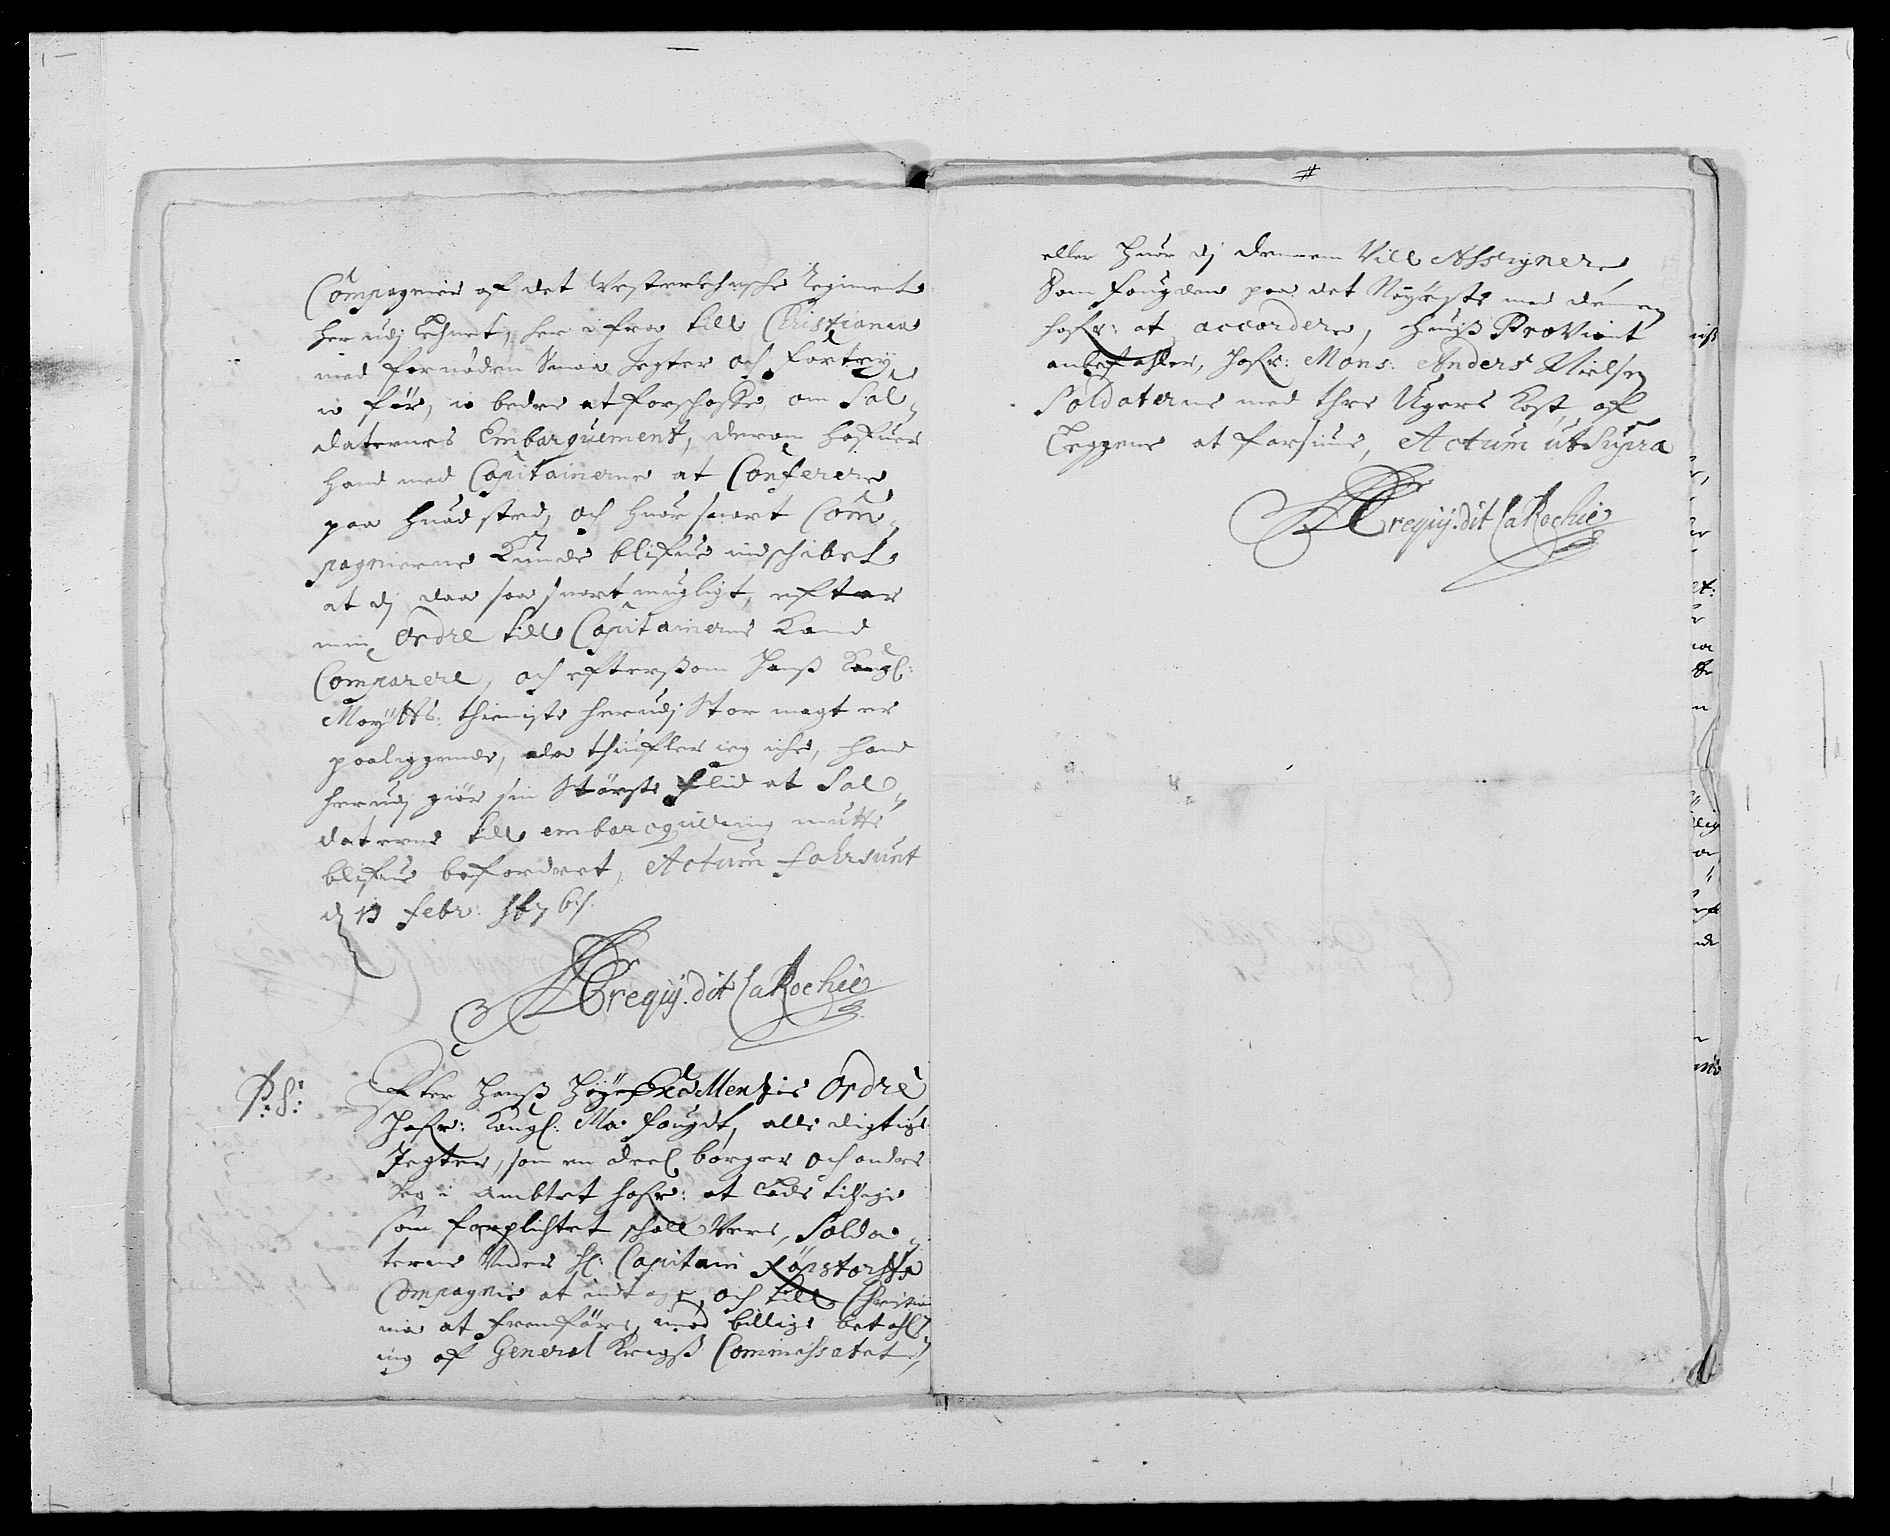 Compagnier af det Westerlehnsche Regimente
her udj Lehnet, her ifra till Christiania
med fornøden Smaa Jegter och fartøy
io før, io bedre at forschaffe, om Sol„
daternes Embarquement, derom hafuer
hand med Capitainerne at Conferere
paa huad sted, och huor snart Com„
pagnierne Kunde blifue indschibet
at dj daa saa snart mugligt, efter
min Ordre till Capitainerne Kand
Comparere, och efterssom Hanß Kongl:
Maytts: thieniste herudj Stor magt er
paaliggende, alz thuifler ieg iche, hand
herudj giør sin Største flid at Sol„
daterne till embarquering maatte
blifue befordret, Actum Fahrsunt
d 13 Febr: 1676.
Crequy. dit la Rochie
P: S: Efter Hanß Høye Excellentzis Ordre
Hafr: Kongl: Ma: fougdt, alle digtige
Jegter, som en deel borger och andre
her i Ambtet hafr: at Lade tilsige
som forplichtet schall Vere, Solda„
terne Under Hl: Capitain Røpstorffs
Compagnie at indtage, och till Christia
nia at fremføre, imod billige betahl„
ing af General Krigß Commissatet,
eller huor dj dennem Vill Assignere,
Som fougden paa det Nøyeste med dennem
hafr: at accordere, huuß Proviant
anbefahler, hafr: Mons: Anders Nielsen
Soldaterne med thre Ugers Kost, af
Leggene at forsiune, Actum ut Supra
Crequy. dit la Rochie